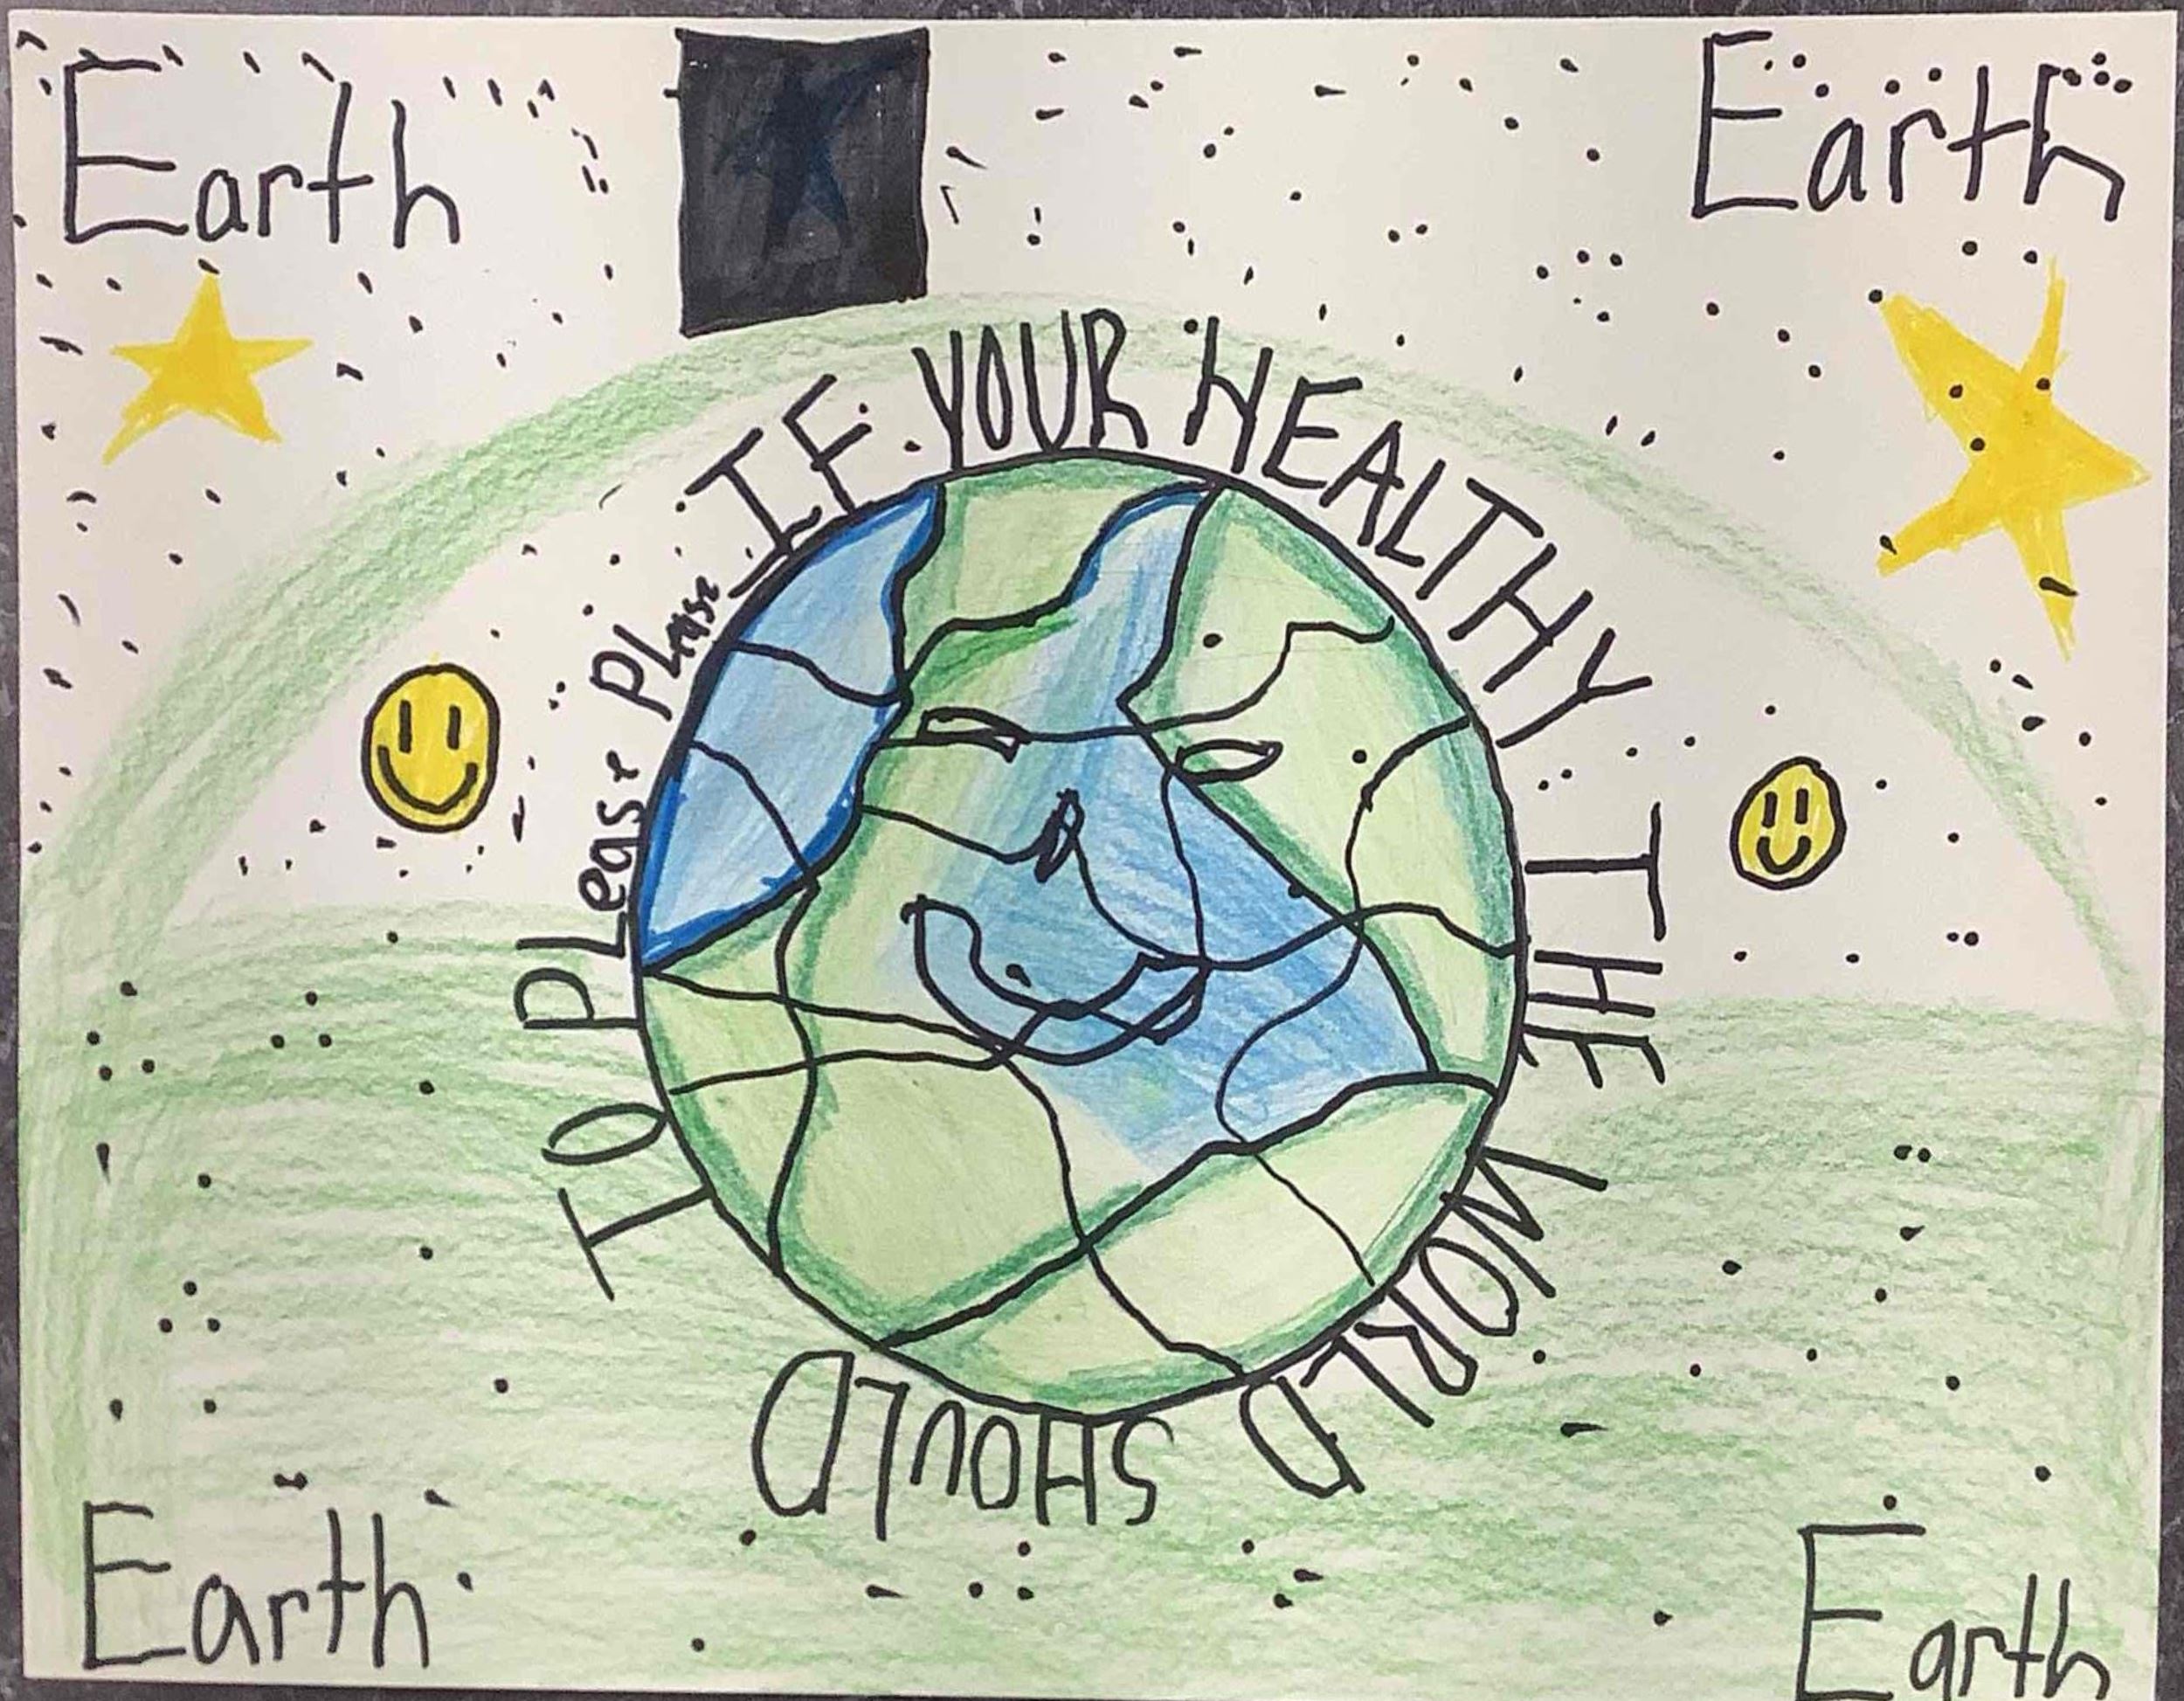 Earth
Earth
IF YOUR HEALTHY THE WORLD SHOULD TO PLease Please
Earth
Earth